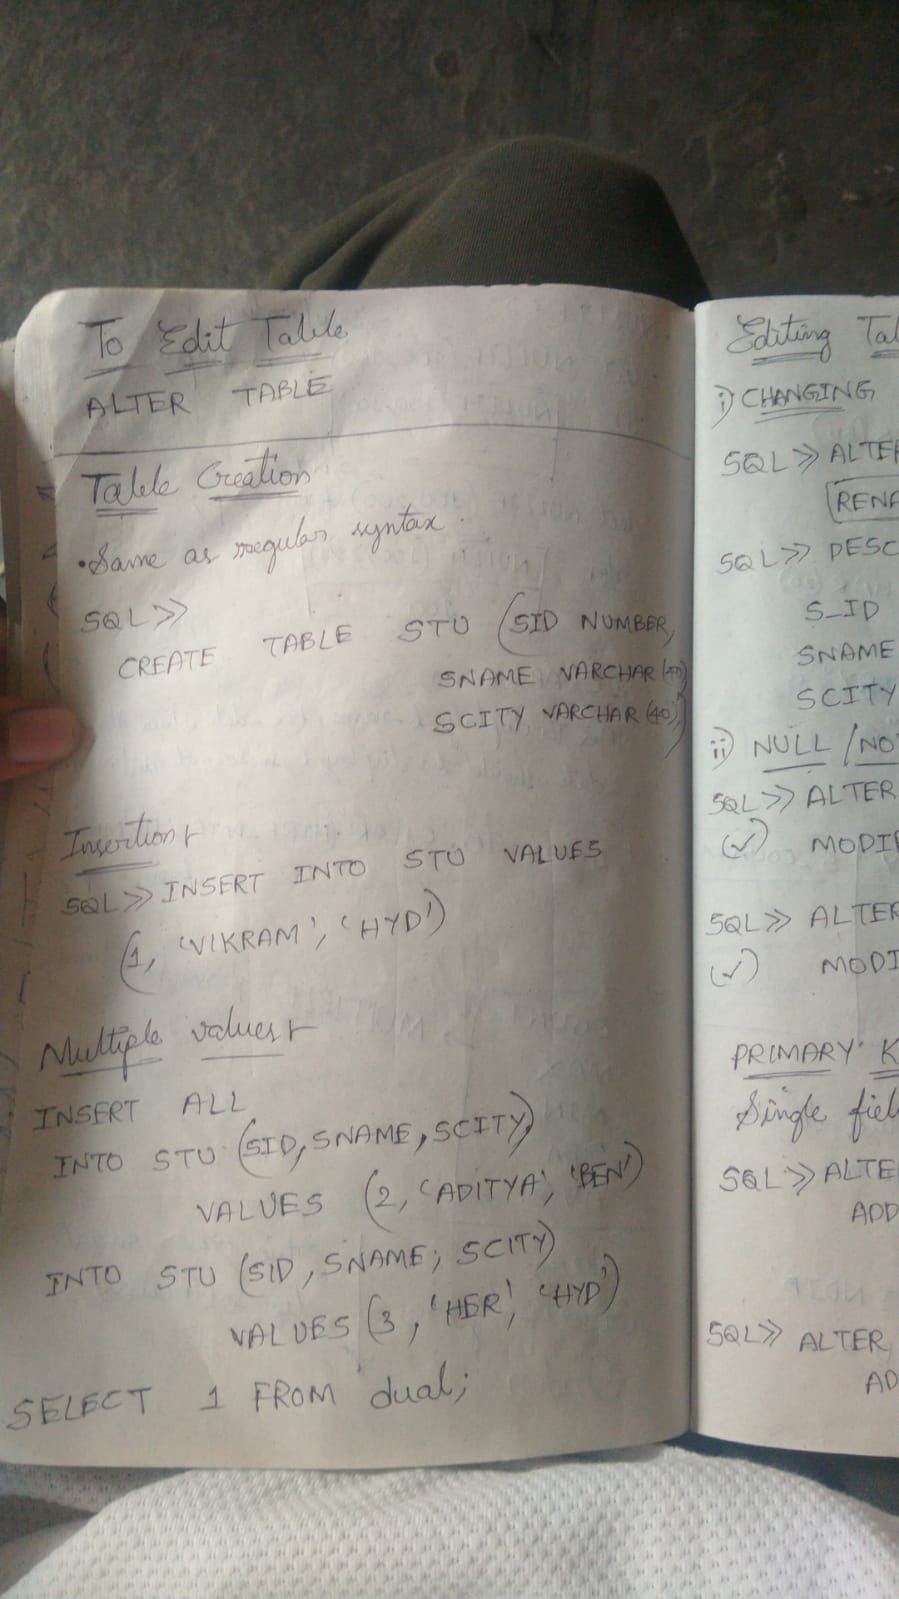 To Edit Table
ALTER TABLE
Table Creation
• Same as regular syntax.
SQL>>
CREATE TABLE STU (SID NUMBER,
SNAME VARCHAR (40)
SCITY VARCHAR (40)
Insertion
SQL>> INSERT INTO STU VALUES
(1, 'VIKRAM', 'HYD')
Multiple values
INSERT ALL
INTO STU (SID, SNAME, SCITY)
VALUES (2, 'ADITYA', 'BEN')
INTO STU (SID, SNAME, SCITY)
VALUES (3, 'HER', 'HYD')
SELECT 1 FROM dual;
Editing
i) CHANGING
SQL>> ALTER
SQL>> DESC
S_ID
SNAME
SCITY
ii) NULL /
SQL>> ALTER
(✓)
SQL>> ALTER
(✓)
PRIMARY
Single
SQL>>
ADD
SQL>> ALTER